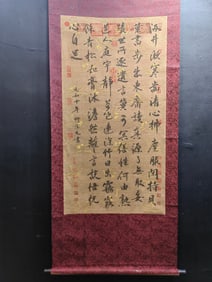 汲井漱寒齒清心拂塵服閒持貝
葉書步出東齋讀真源了無取妄
跡世所逐遺言冀可冥繕性何由熟
道人庭宇靜苔色連深竹日出霧露
餘青松如膏沐澹然離言說悟悅
心自足
元和十年